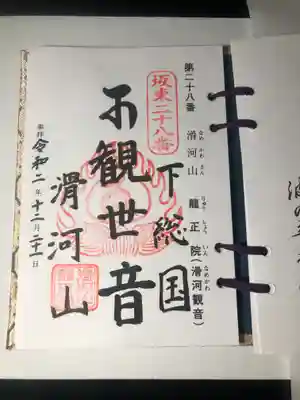 第二十八番 滑河山 龍正院(滑河観音)
なめ かわ さん りゅう しょう いん なめかわ
坂東二十八番
下総国
観世音
滑河山
奉拝 令和二年十二月二十二日